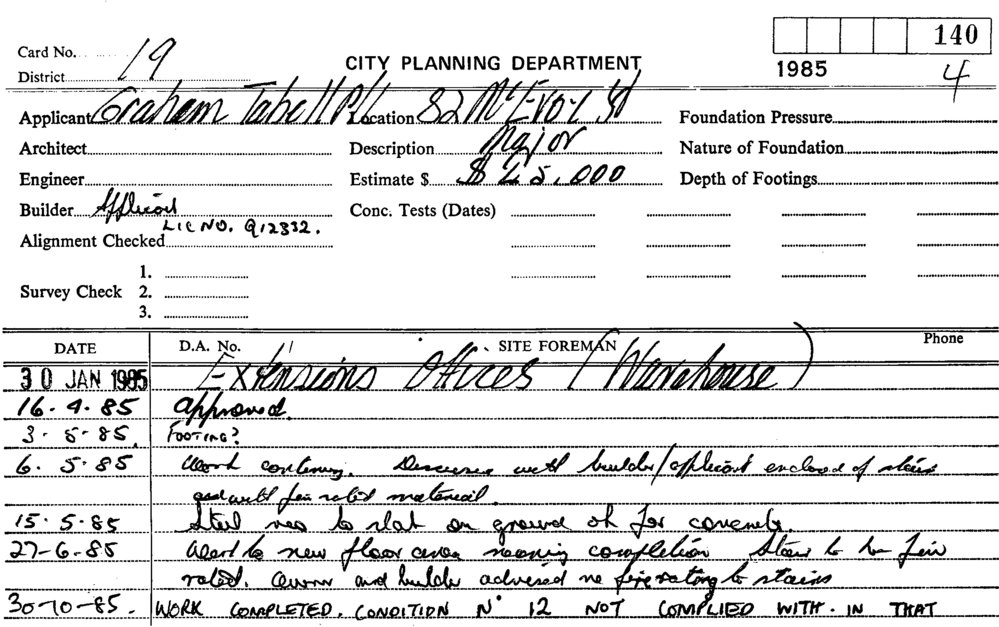 140
Card No. 19
CITY PLANNING DEPARTMENT
1985
4
District
Applicant Graham Tabell P/L Location 82 McEvoy St Foundation Pressure
Architect Description Major Nature of Foundation
Engineer Estimate $ $ 45,000 Depth of Footings
Builder Applicant Conc. Tests (Dates)
LIC NO. Q12332.
Alignment Checked
1.
Survey Check 2.
3.
DATE D.A. No. SITE FOREMAN Phone
30 JAN 1985 Extensions Offices (Warehouse)
16.4.85 approved.
3.5.85. FOOTING?
6.5.85 Work continuing. Discussed with builder/applicant enclosed of stairs
with fire rated material.
15.5.85 Steel to slab on ground ok for concrete.
27-6-85 Work to new floor area nearing completion Stair to be fire
rated. Owner and builder advised re fire rating to stairs
30-10-85. WORK COMPLETED. CONDITION No 12 NOT COMPLIED WITH. IN THAT